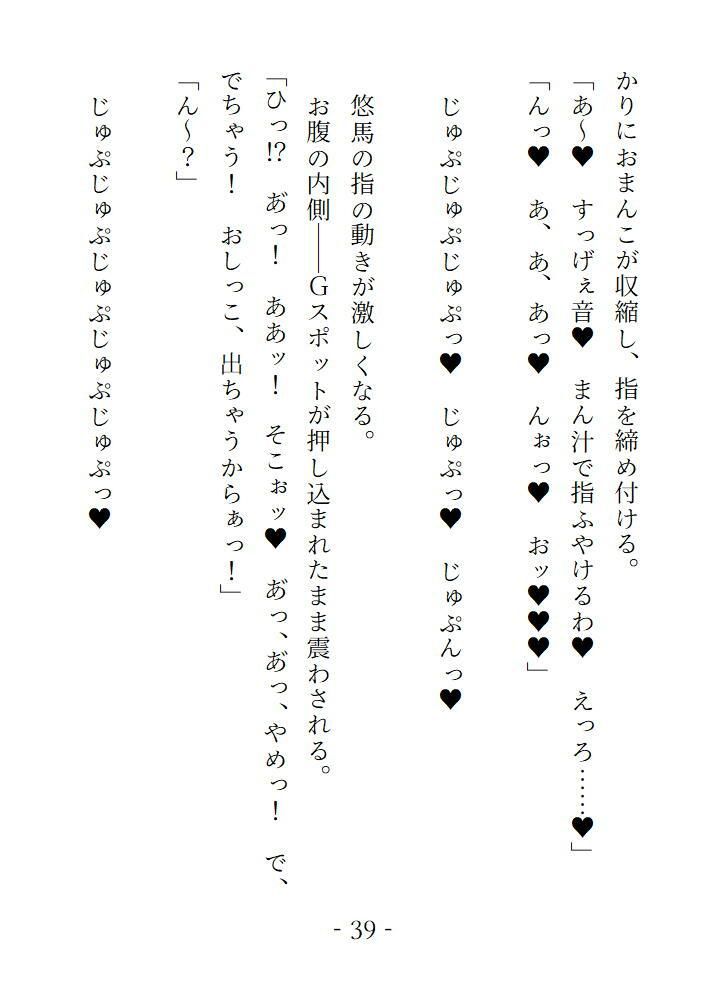 かりにおまんこが収縮し、指を締め付ける。
「あ～♥　すっげぇ音♥　まん汁で指ふやけるわ♥　えっろ……♥」
「んっ♥　あ、あ、あっ♥　んぉっ♥　おッ♥♥♥」
じゅぷじゅぷじゅぷっ♥　じゅぷっ♥　じゅぷんっ♥
悠馬の指の動きが激しくなる。
お腹の内側――Ｇスポットが押し込まれたまま震わされる。
「ひっ!?　あ゛っ！　ああッ！　そこぉッ♥　あ゛っ、あ゛っ、やめっ！　で、
でちゃう！　おしっこ、出ちゃうからぁっ！」
「ん～？」
じゅぷじゅぷじゅぷじゅぷじゅぷっ♥
- 39 -